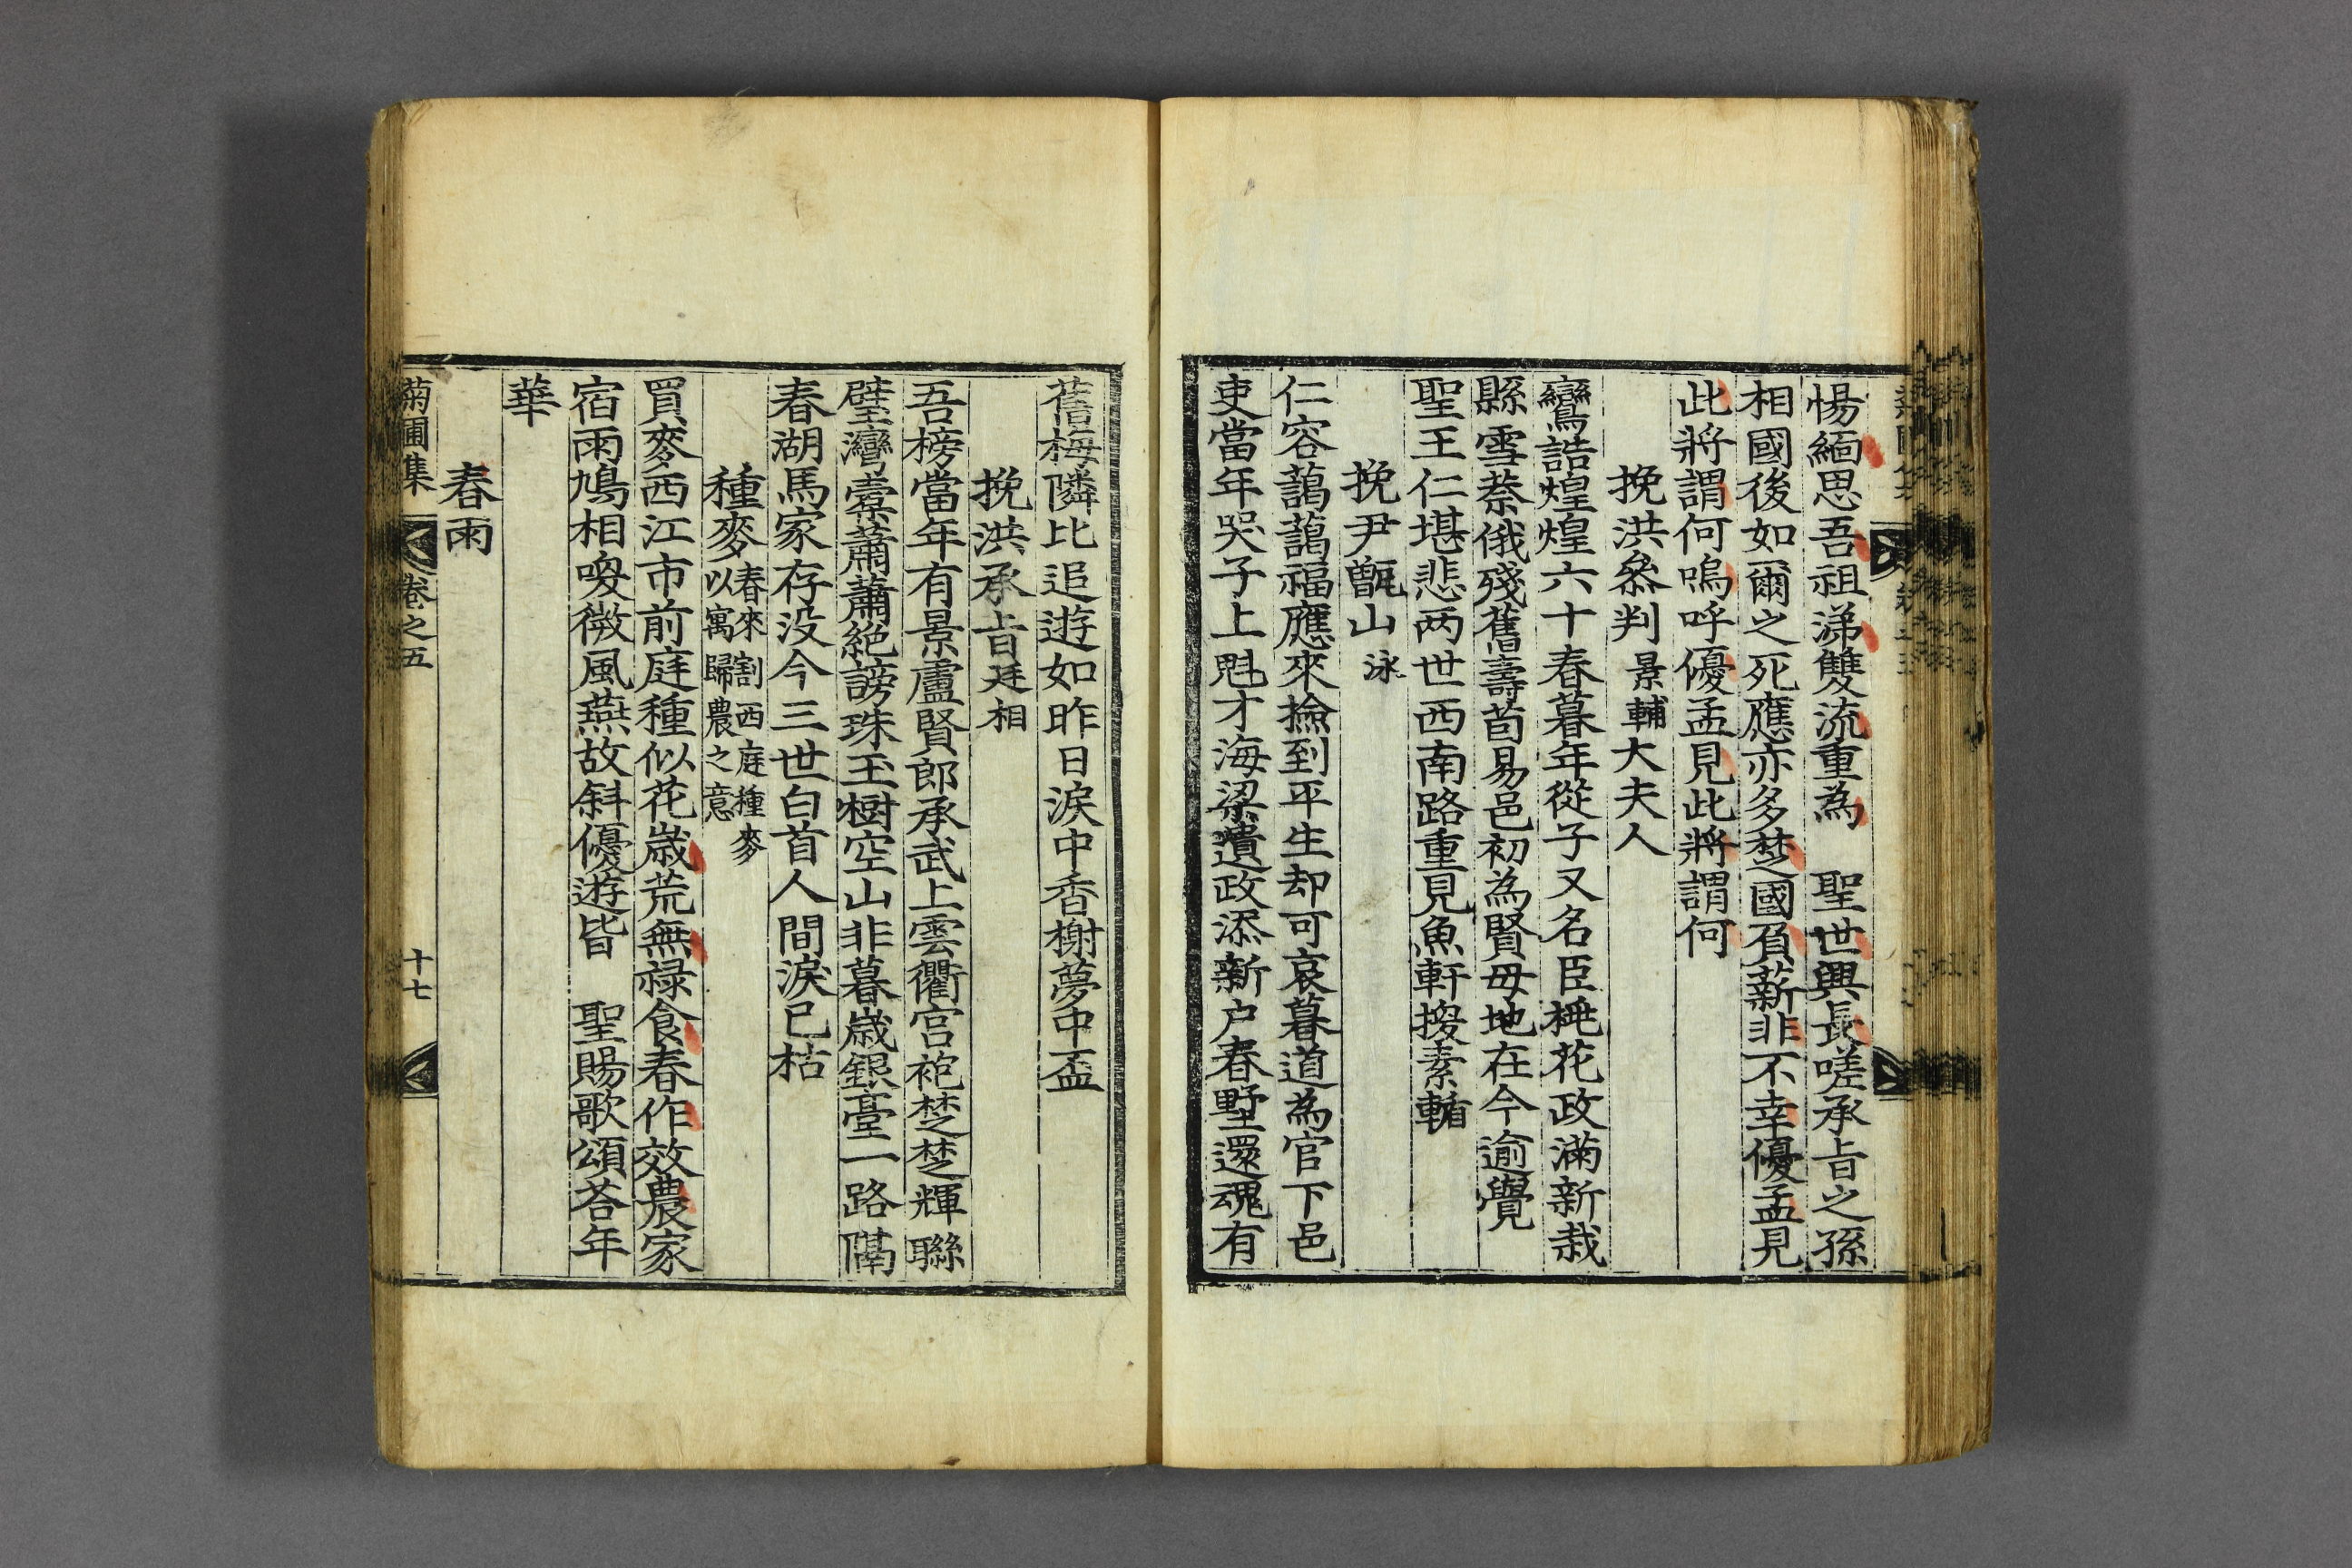 惕緬思吾祖涕雙流重為　聖世興長嗟承旨之孫
相國後如爾之死應亦多楚國負薪非不幸優孟見
此將謂何嗚呼優孟見此將謂何
挽洪參判景輔大夫人
鸞誥煌煌六十春暮年從子又名臣桃花政滿新栽
縣雪蔡俄殘舊壽茵易邑初為賢母地在今逾覺
聖王仁堪悲两世西南路重見魚軒掇素輴
挽尹甑山泳
仁容藹藹福應來撿到平生却可哀暮道為官下邑
吏當年哭子上魁才海梁遺政添新户春墅還魂有
舊梅隣比追遊如昨日淚中香榭夢中盃
挽洪承旨廷相
吾榜當年有景盧賢郎承武上雲衢宮袍楚楚輝聯
璧灣橐蕭蕭絕謗珠玉樹空山非暮歲銀臺一路隔
春湖馬家存没今三世白首人間淚已枯
種麥春來割西庭種麥以寓歸農之意
買麥西江市前庭種似花歲荒無祿食春作效農家
宿雨鳩相喚微風燕故斜優遊皆　聖賜歌頌荅年
華
春雨
菊圃集　卷之五　十七